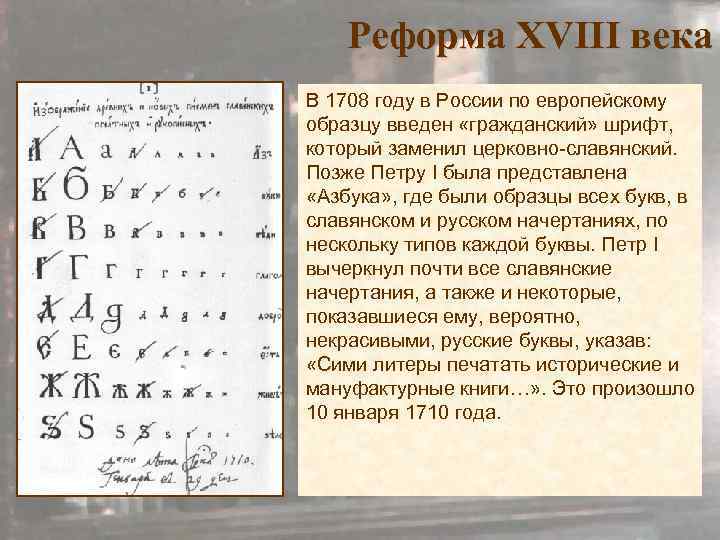 Реформа XVIII века
[1]
Изображение древнихъ и новыхъ писменъ славенскихъ
печатныхъ и рукописныхъ.
А А а а а а а Азъ
Б Б Б б б б
В В в в в в вѣди
Г Г г г г г глагол
Д Д д д д д добро
Є Е є е е е есть
Ж Ж ж ж ж ж
Ѕ S ѕ ѕ ѕ ѕ ѕѣло
1710.
Генваря
В 1708 году в России по европейскому
образцу введен «гражданский» шрифт,
который заменил церковно-славянский.
Позже Петру I была представлена
«Азбука», где были образцы всех букв, в
славянском и русском начертаниях, по
нескольку типов каждой буквы. Петр I
вычеркнул почти все славянские
начертания, а также и некоторые,
показавшиеся ему, вероятно,
некрасивыми, русские буквы, указав:
«Сими литеры печатать исторические и
мануфактурные книги…». Это произошло
10 января 1710 года.